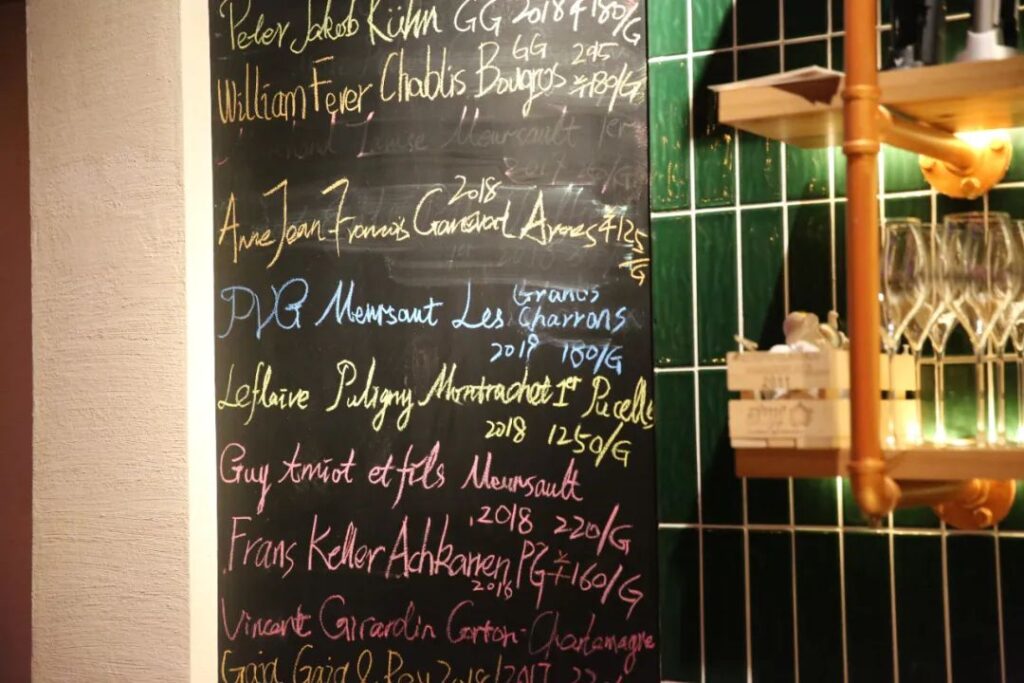 Peter Jakob Kühn GG 2018 ¥180/G
GG 295
William Fever Chablis Bougros ¥180/G
Meursault 1er
2018
Anne Jean-Francois Ganevat ¥125
/G
PVG Meursaut Les Grands Charrons
2019 180/G
Leflaive Puligny Montrachet 1er Pucelle
2018 1250/G
Guy Amiot et fils Meursault
2018 220/G
Frans Keller Achkarren PG ¥160/G
2016
Vincent Girardin Corton-Charlemagne
Gaia Gaia & Rey 2018/2017